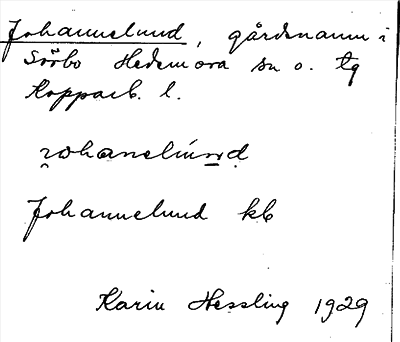 Johannelund, gårdsnamn i
Sörbo Hedemora sn o. tg
Kopparb. l.
Johannelund kb
Karin Hessling 1929